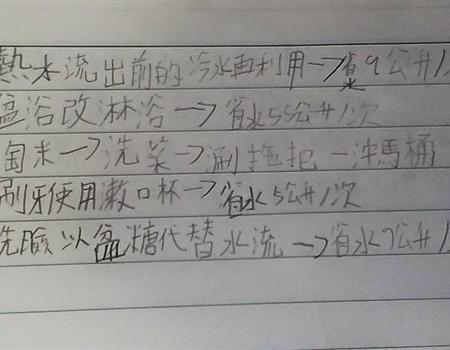 熱水流出前的冷水再利用→省水9公升/次
盆浴改淋浴→省水55公升/次
淘米→洗菜→涮拖把→沖馬桶
刷牙使用漱口杯→省水5公升/次
洗臉以盆糖代替水流→省水7公升/